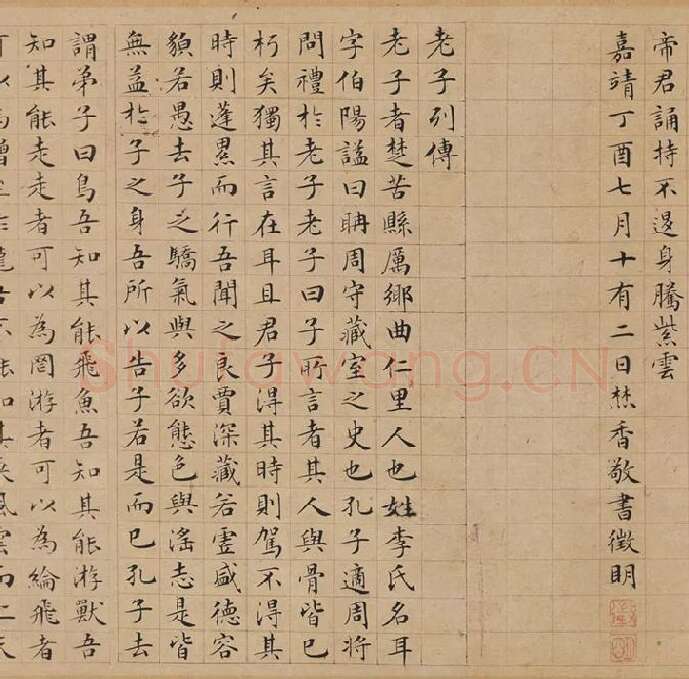 帝君誦持不退身騰紫雲
嘉靖丁酉七月十有二日焚香敬書徵明
老子列傳
老子者楚苦縣厲鄉曲仁里人也姓李氏名耳
字伯陽謚曰聃周守藏室之史也孔子適周將
問禮於老子老子曰子所言者其人與骨皆已
朽矣獨其言在耳且君子得其時則駕不得其
時則蓬累而行吾聞之良賈深藏若虛盛德容
貌若愚去子之驕氣與多欲態色與淫志是皆
無益於子之身吾所以告子若是而已孔子去
謂弟子曰鳥吾知其能飛魚吾知其能游獸吾
知其能走走者可以為罔游者可以為綸飛者
可以為矰至於龍吾不能知其乘風雲而上天
Shufawang.CN